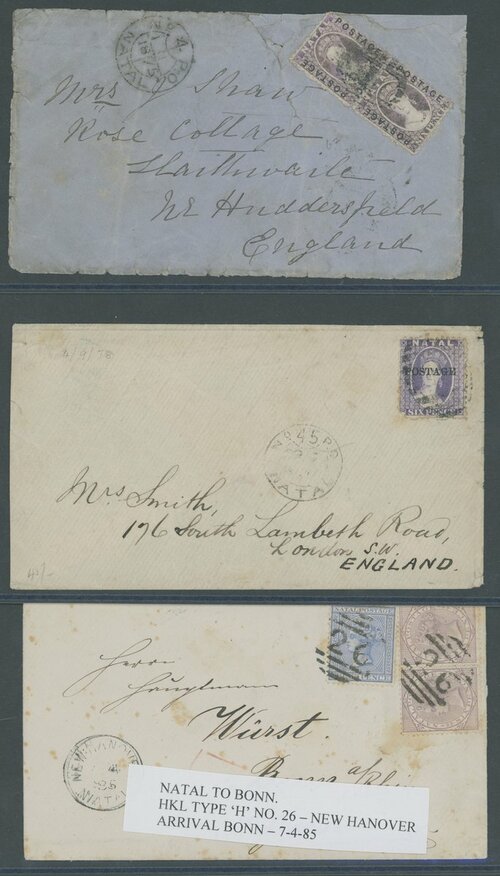 No 4 PO
NATAL
POSTAGE POSTAGE
POSTAGE POSTAGE
Mrs J Shaw
Rose Cottage
Slaithwaite
Nr Huddersfield
England
4/9/78
NATAL
POSTAGE
SIX PENCE
No 45 PO
NATAL
Mrs Smith,
176 South Lambeth Road,
London S.W.
ENGLAND.
NATAL POSTAGE
PENCE
26
26
Herrn
Hauptmann
Würst.
Bonn a/Rhein
NEW HANOVER
4
NATAL
NATAL TO BONN.
HKL TYPE ‘H’ NO. 26 – NEW HANOVER
ARRIVAL BONN – 7-4-85